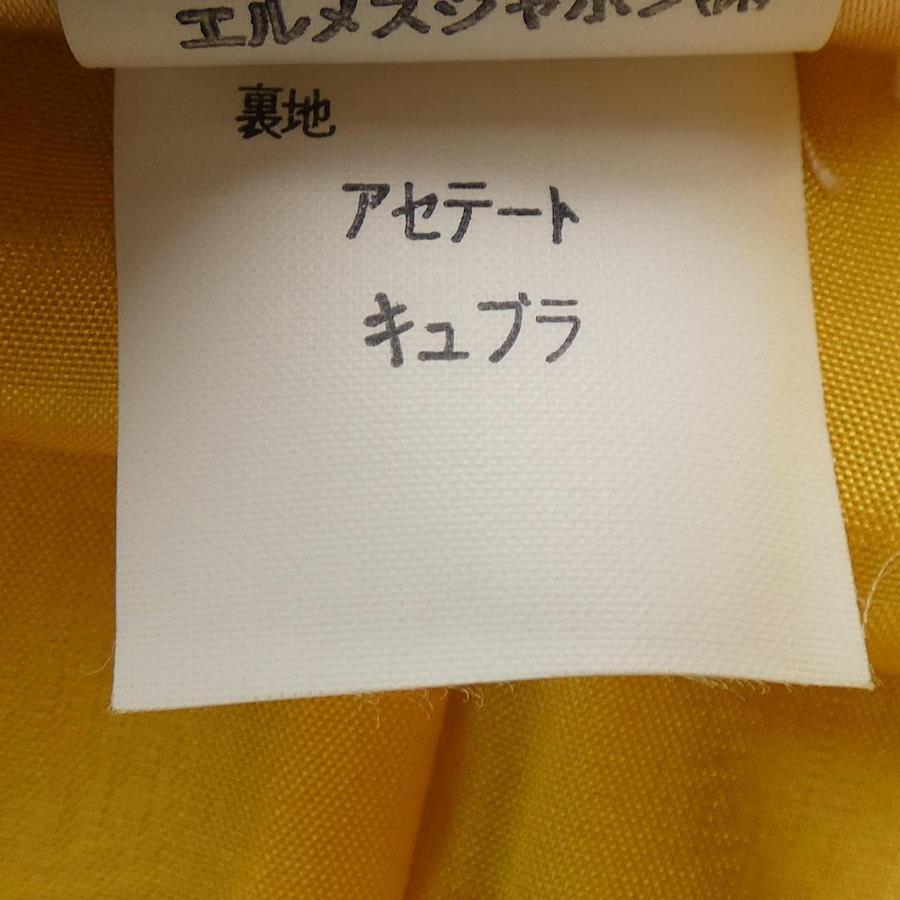 エルメスジャポン㈱
裏地
アセテート
キュプラ